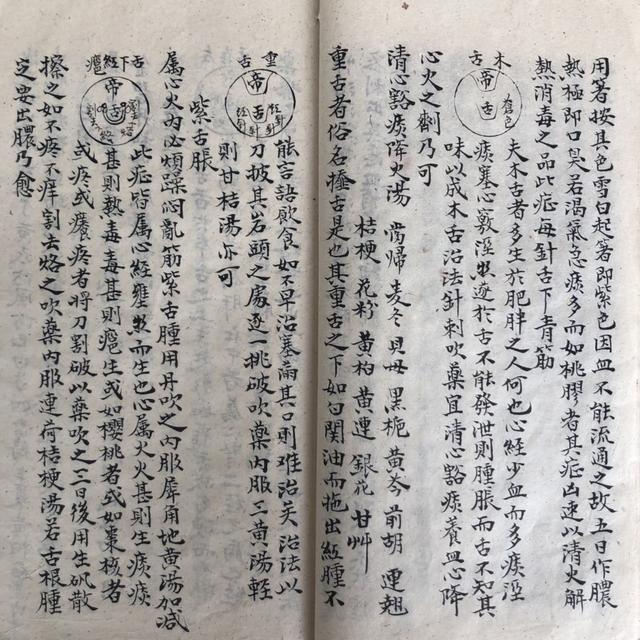 用著按其色雪白起著即紫色因血不能流通之故五日作膿
熱極即口臭若渴氣急痰多而如桃膠者其症凶速以清火解
熱消毒之品此症毋針舌下青筋
木舌
帝舌
舊色
夫木舌者多生於肥胖之人何也心經少血而多痰溼
痰塞心竅溼熱遂於舌不能發泄則腫脹而舌不知其
味以成木舌治法針刺吹藥宜清心豁痰養血心降
心火之劑乃可
清心豁痰降火湯 當歸 麦冬 貝母 黑栀 黄芩 前胡 連翹
桔梗 花粉 黄柏 黄連 銀花 甘艸
重舌者俗名揰舌是也其重舌之下如勺関油而拖出紅腫不
重舌
帝舌
紅針
紅針
能言語飲食如不早治塞滿其口則难治矣治法以
刀披其岩頭之處逐一挑破吹藥內服三黄湯輕
則甘桔湯亦可
紫舌脹
属心火內心煩躁悶亂筋紫舌腫用丹吹之內服犀角地黄湯加減
舌下經癰
帝舌
此症皆属心經壅熱而生也心属火火甚則生痰痰
甚則熱毒毒甚則癰生或如櫻桃者或如棗核者
或疼或癢疼者将刀割破以藥吹之三日後用生矾散
搽之如不疼不痒割去烙之吹藥內服連荷桔梗湯若舌根腫
定要出膿乃愈